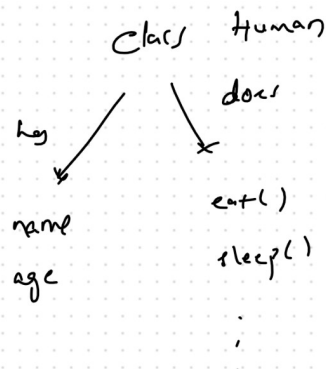 Class Human
has does
name eat()
age sleep()
: